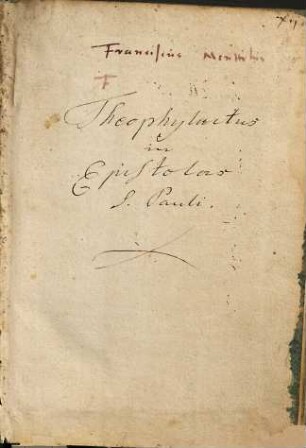 Franciscus
F
Theophylactus
in
Epistolas
S. Pauli.